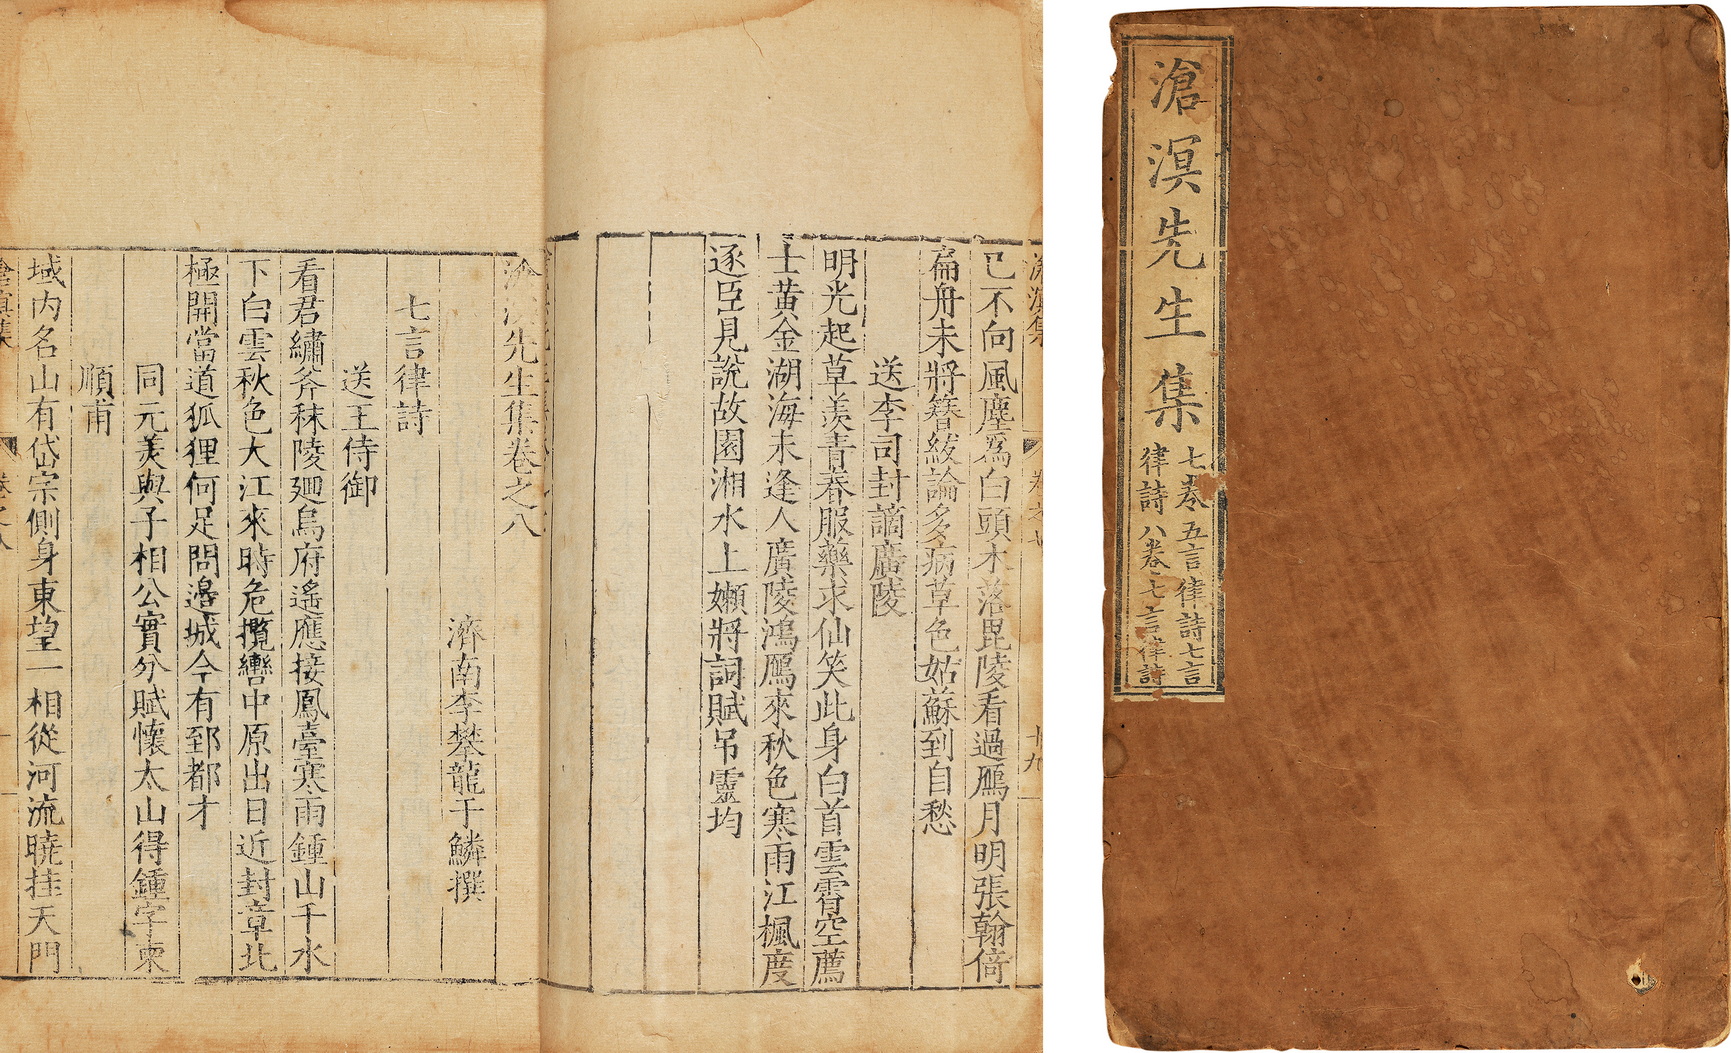 已不向風塵爲白頭木落毘陵看過鴈月明張翰倚
扁舟未將簪紱論多病草色姑蘇到自愁
送李司封謫廣陵
明光起草羨青春服藥求仙笑此身白首雲霄空薦
士黃金湖海未逢人廣陵鴻鴈來秋色寒雨江楓度
逐臣見說故園湘水上嬾將詞賦吊靈均
滄溟先生集卷之八
濟南李攀龍于鱗撰
七言律詩
送王侍御
看君繡斧秣陵廻烏府遙應接鳳臺寒雨鍾山千水
下白雲秋色大江來時危攬轡中原出日近封章北
極開當道狐狸何足問邊城今有郅都才
同元美與子相公實分賦懷太山得鍾字柬
順甫
域內名山有岱宗側身東望一相從河流曉挂天門
滄溟集
滄溟先生集
七卷 五言律詩七言
律詩 八卷 七言律詩